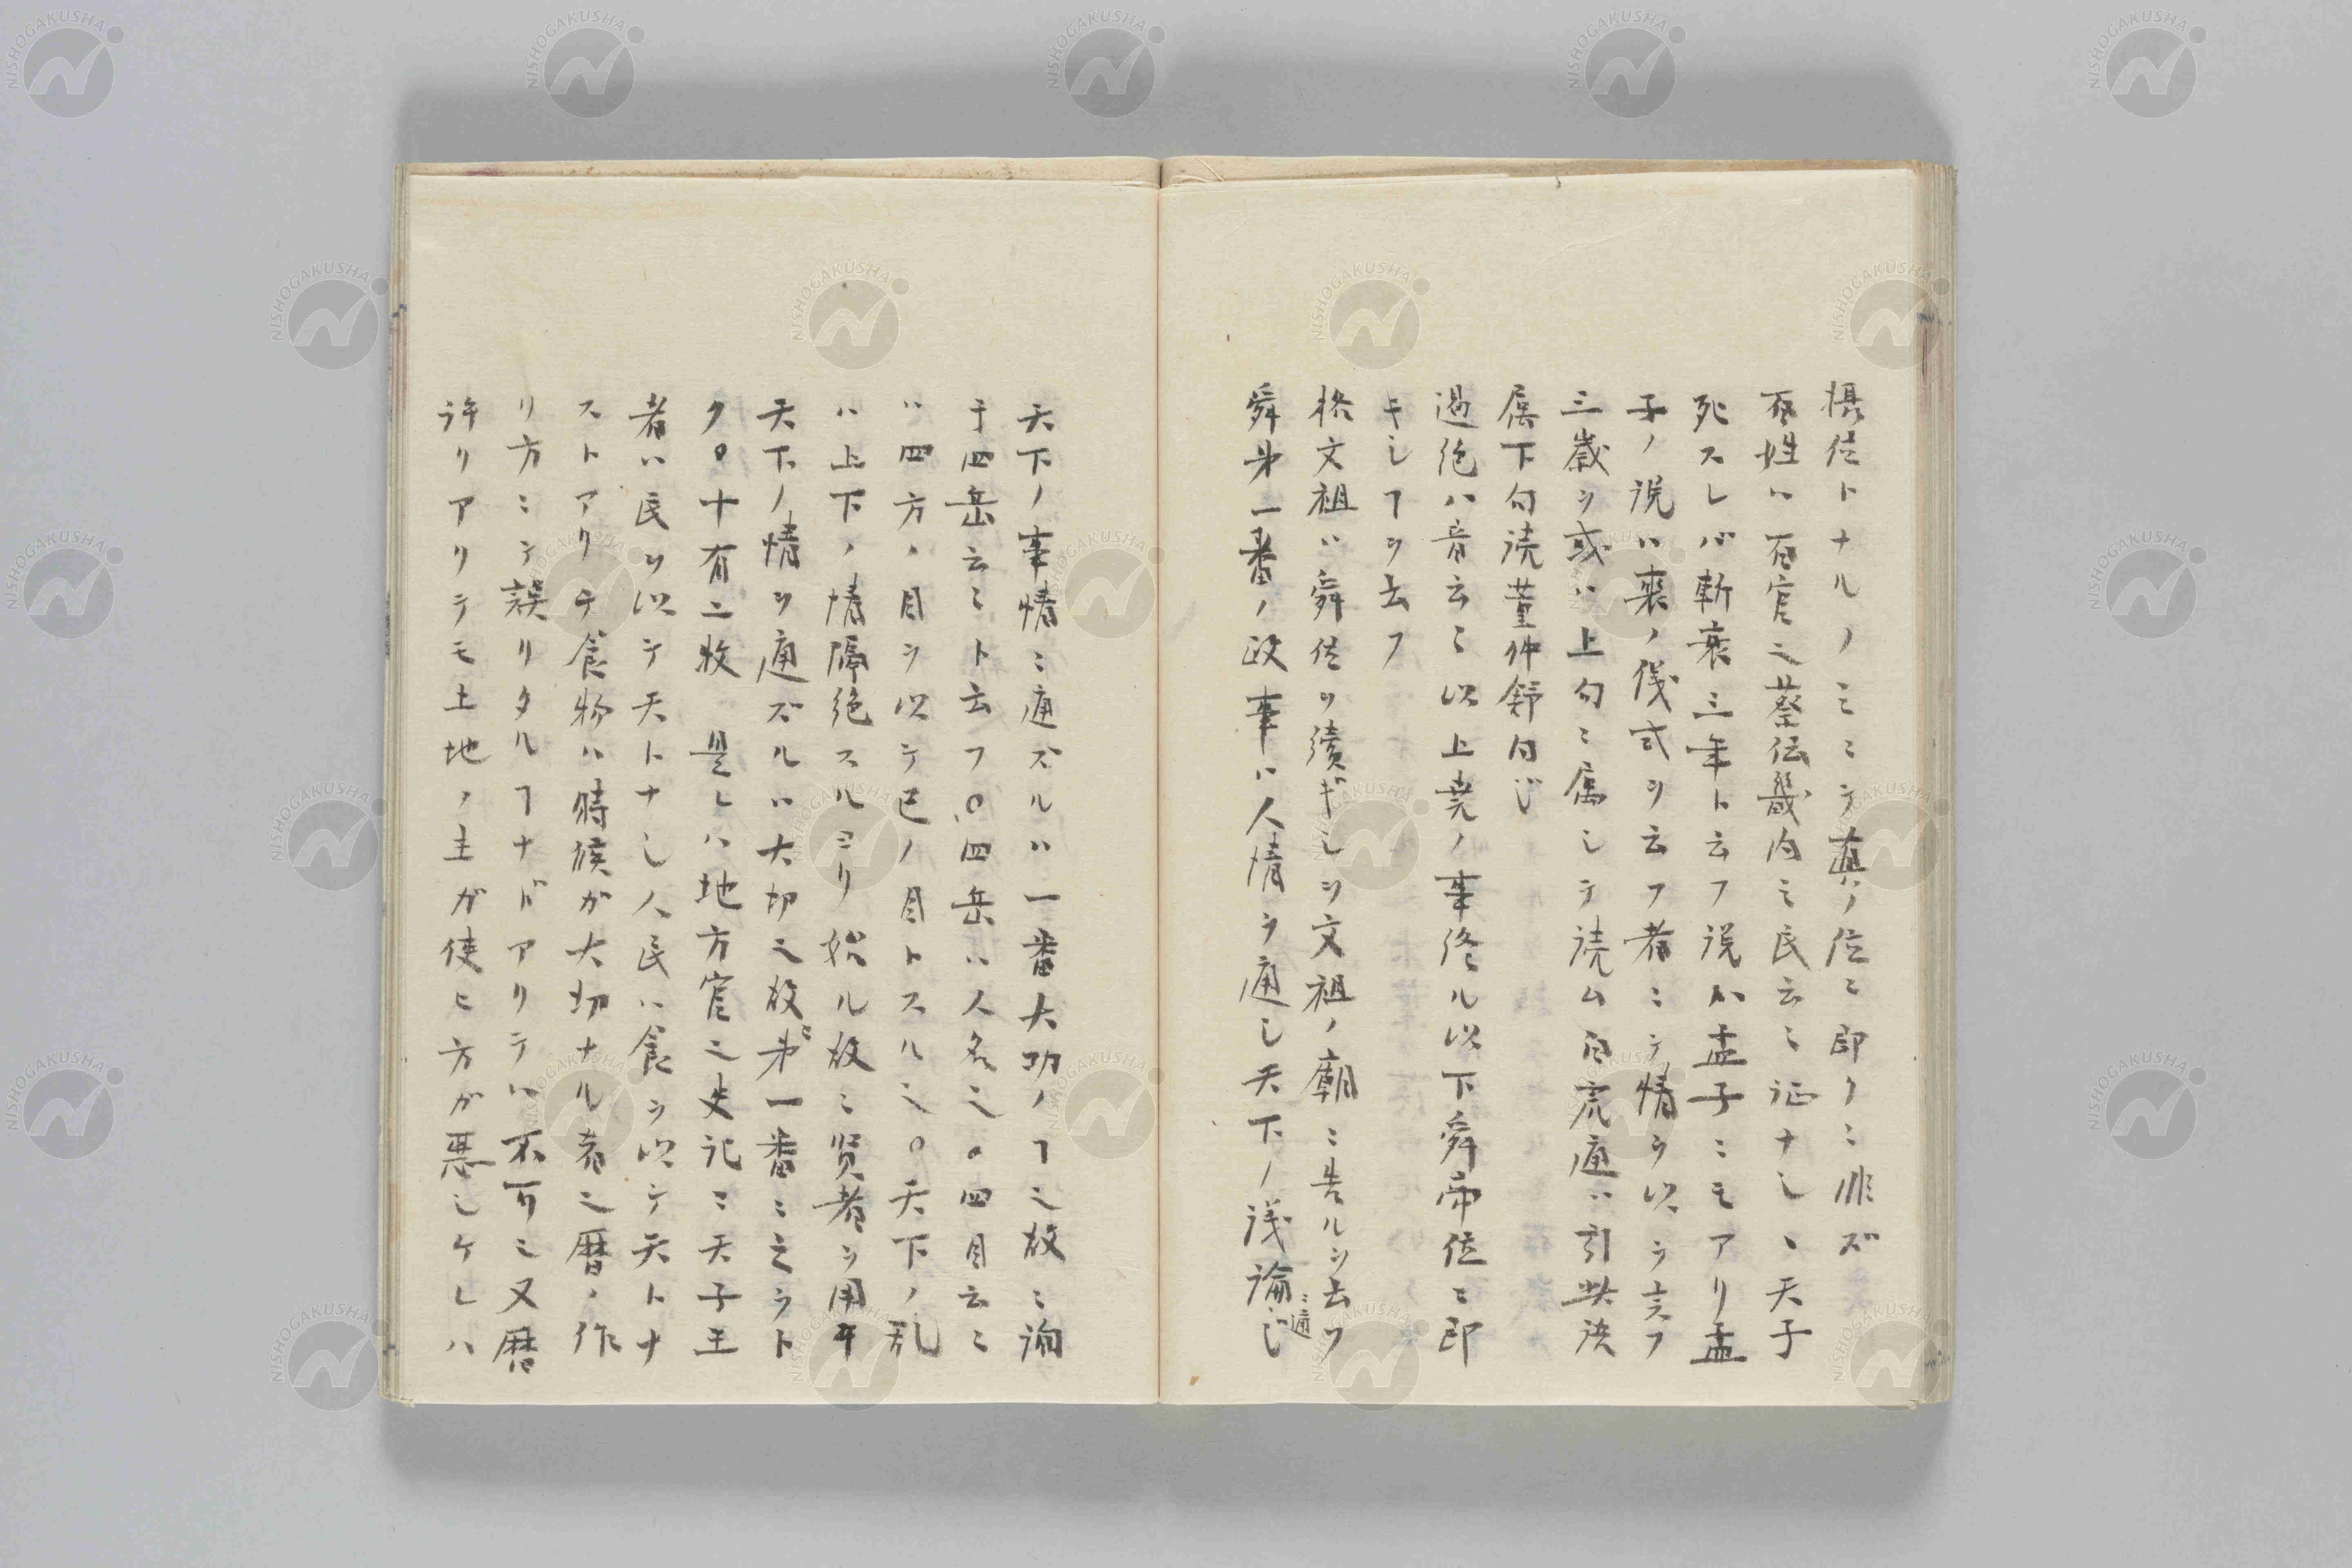 摂位トナルノミニテ真ノ位ニ即クニ非ズ
百姓ハ百官也蔡伝畿内ニ民云々証ナシ、天子
死スレバ斬衰三年ト云フ説ガ孟子ニモアリ孟
子ノ説ハ喪ノ儀式ヲ云フ者ニシテ情ヲ以テ言フ
三歳ヲ或ハ上句ニ属シテ読ム白虎通ハ引
属下句読董仲舒同じ
過絶ハ音云々以上堯ノ事終ル以下舜帝位ニ即
キシヿヲ云フ
格文祖ハ舜位ヲ續ギシヲ文祖ノ廟ニ告ルヲ云フ
舜第一番ノ政事ハ人情ヲ通シ天下ノ議論ニ通じ
天下ノ事情ニ通ズルハ一番大切ノヿ也故ニ詢
于四岳云々ト云フ○四岳ハ人名也○四目云々
ハ四方ノ目ヲ以テ己ノ目トスル也○天下ノ乱
ハ上下ノ情隔絶スルヨリ始ル故ニ賢者ヲ用キ
天下ノ情ヲ通ズルハ大切也故ニ第一番ニ之ヲト
ク○十有二牧 是レハ地方官也史記ニ天子王
者ハ民ヲ以テ天トナシ人民ハ食ヲ以テ天トナ
ストアリテ食物ハ時候ガ大切ナル者也暦ノ作
リ方ニテ誤リタルヿナドアリテハ不可也又暦
許リアリテモ土地ノ主ガ使ヒ方ガ悪シケレハ
NISHOGAKUSHA